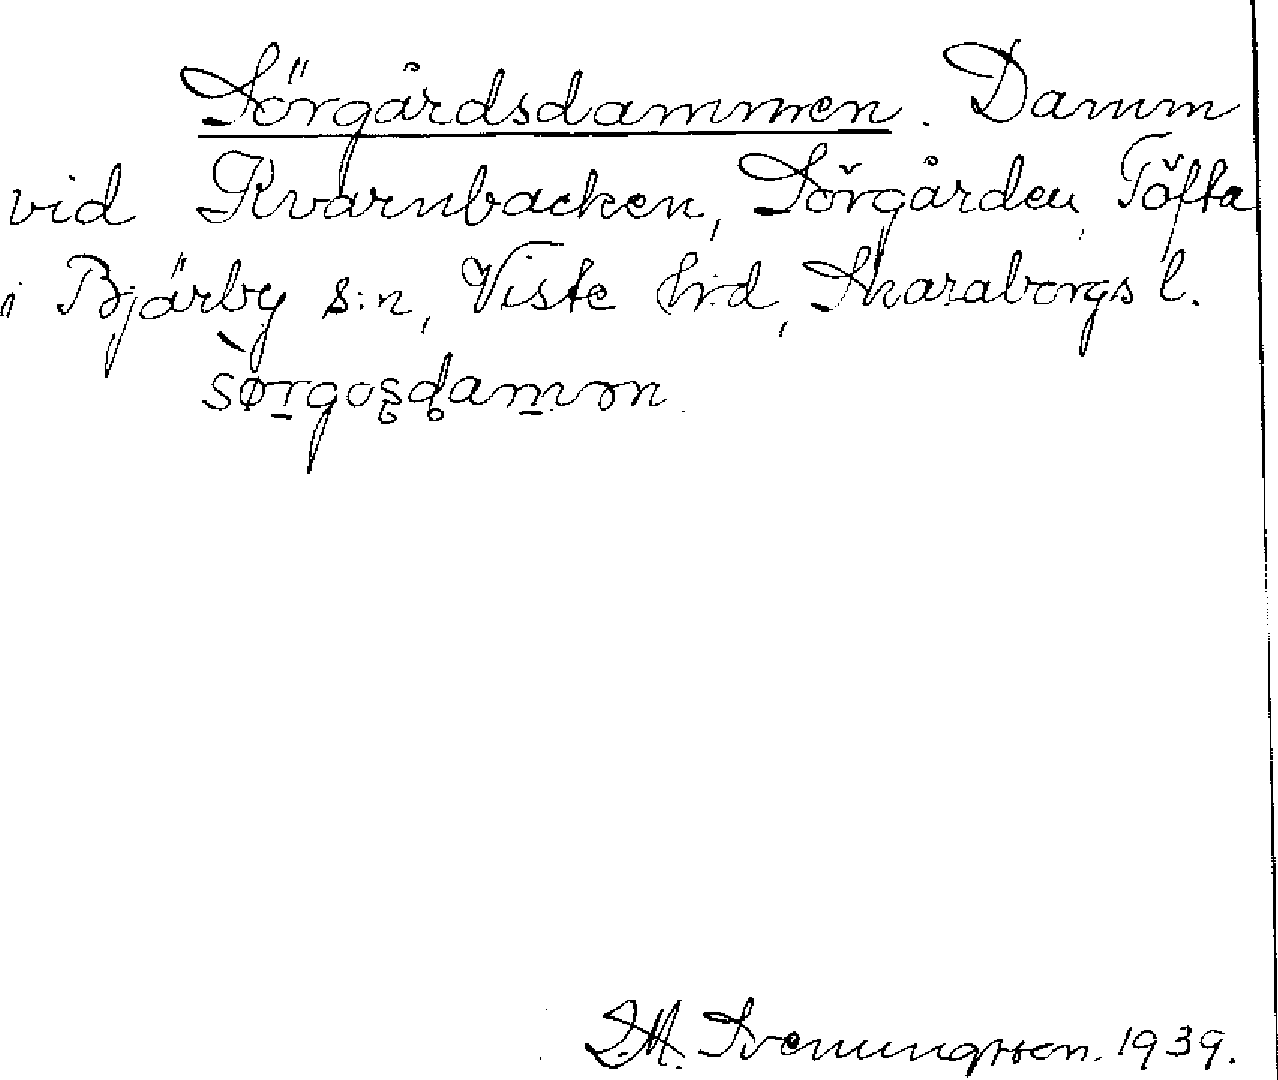 Sörgårdsdammen. Damm
vid Kvarnbacken, Sörgården, Töfta
i Bjärby s:n, Viste hrd, Skaraborgs l.
1939.